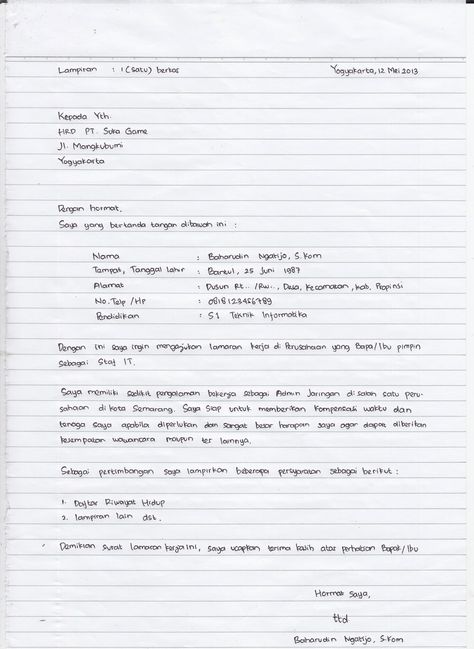 Lampiran : 1 (satu) berkas Yogyakarta, 12 Mei 2013
Kepada Yth.
HRD PT. Suka Game
Jl. Mangkubumi
Yogyakarta
Dengan hormat,
Saya yang bertanda tangan dibawah ini :
Nama : Baharudin Ngatijo, S.Kom
Tempat, Tanggal lahir : Bantul, 25 Juni 1987
Alamat : Dusun Rt.. /Rw.., Desa, Kecamatan, Kab. Propinsi
No. Telp /HP : 0818123456789
Pendidikan : S1 Teknik Informatika
Dengan ini saya ingin mengajukan lamaran kerja di Perusahaan yang Bapa/Ibu pimpin
sebagai Staf IT.
Saya memiliki sedikit pengalaman bekerja sebagai Admin Jaringan di salah satu peru-
sahaan di kota Semarang. Saya siap untuk memberikan kompensasi waktu dan
tenaga saya apabila diperlukan dan sangat besar harapan saya agar dapat diberikan
kesempatan wawancara maupun tes lainnya.
Sebagai pertimbangan saya lampirkan beberapa persyaratan sebagai berikut :
1. Daftar Riwayat Hidup
2. lampiran lain dst.
Demikian surat lamaran kerja ini, saya ucapkan terima kasih atas perhatian Bapak/Ibu
Hormat Saya,
ttd
Baharudin Ngatijo, S.Kom